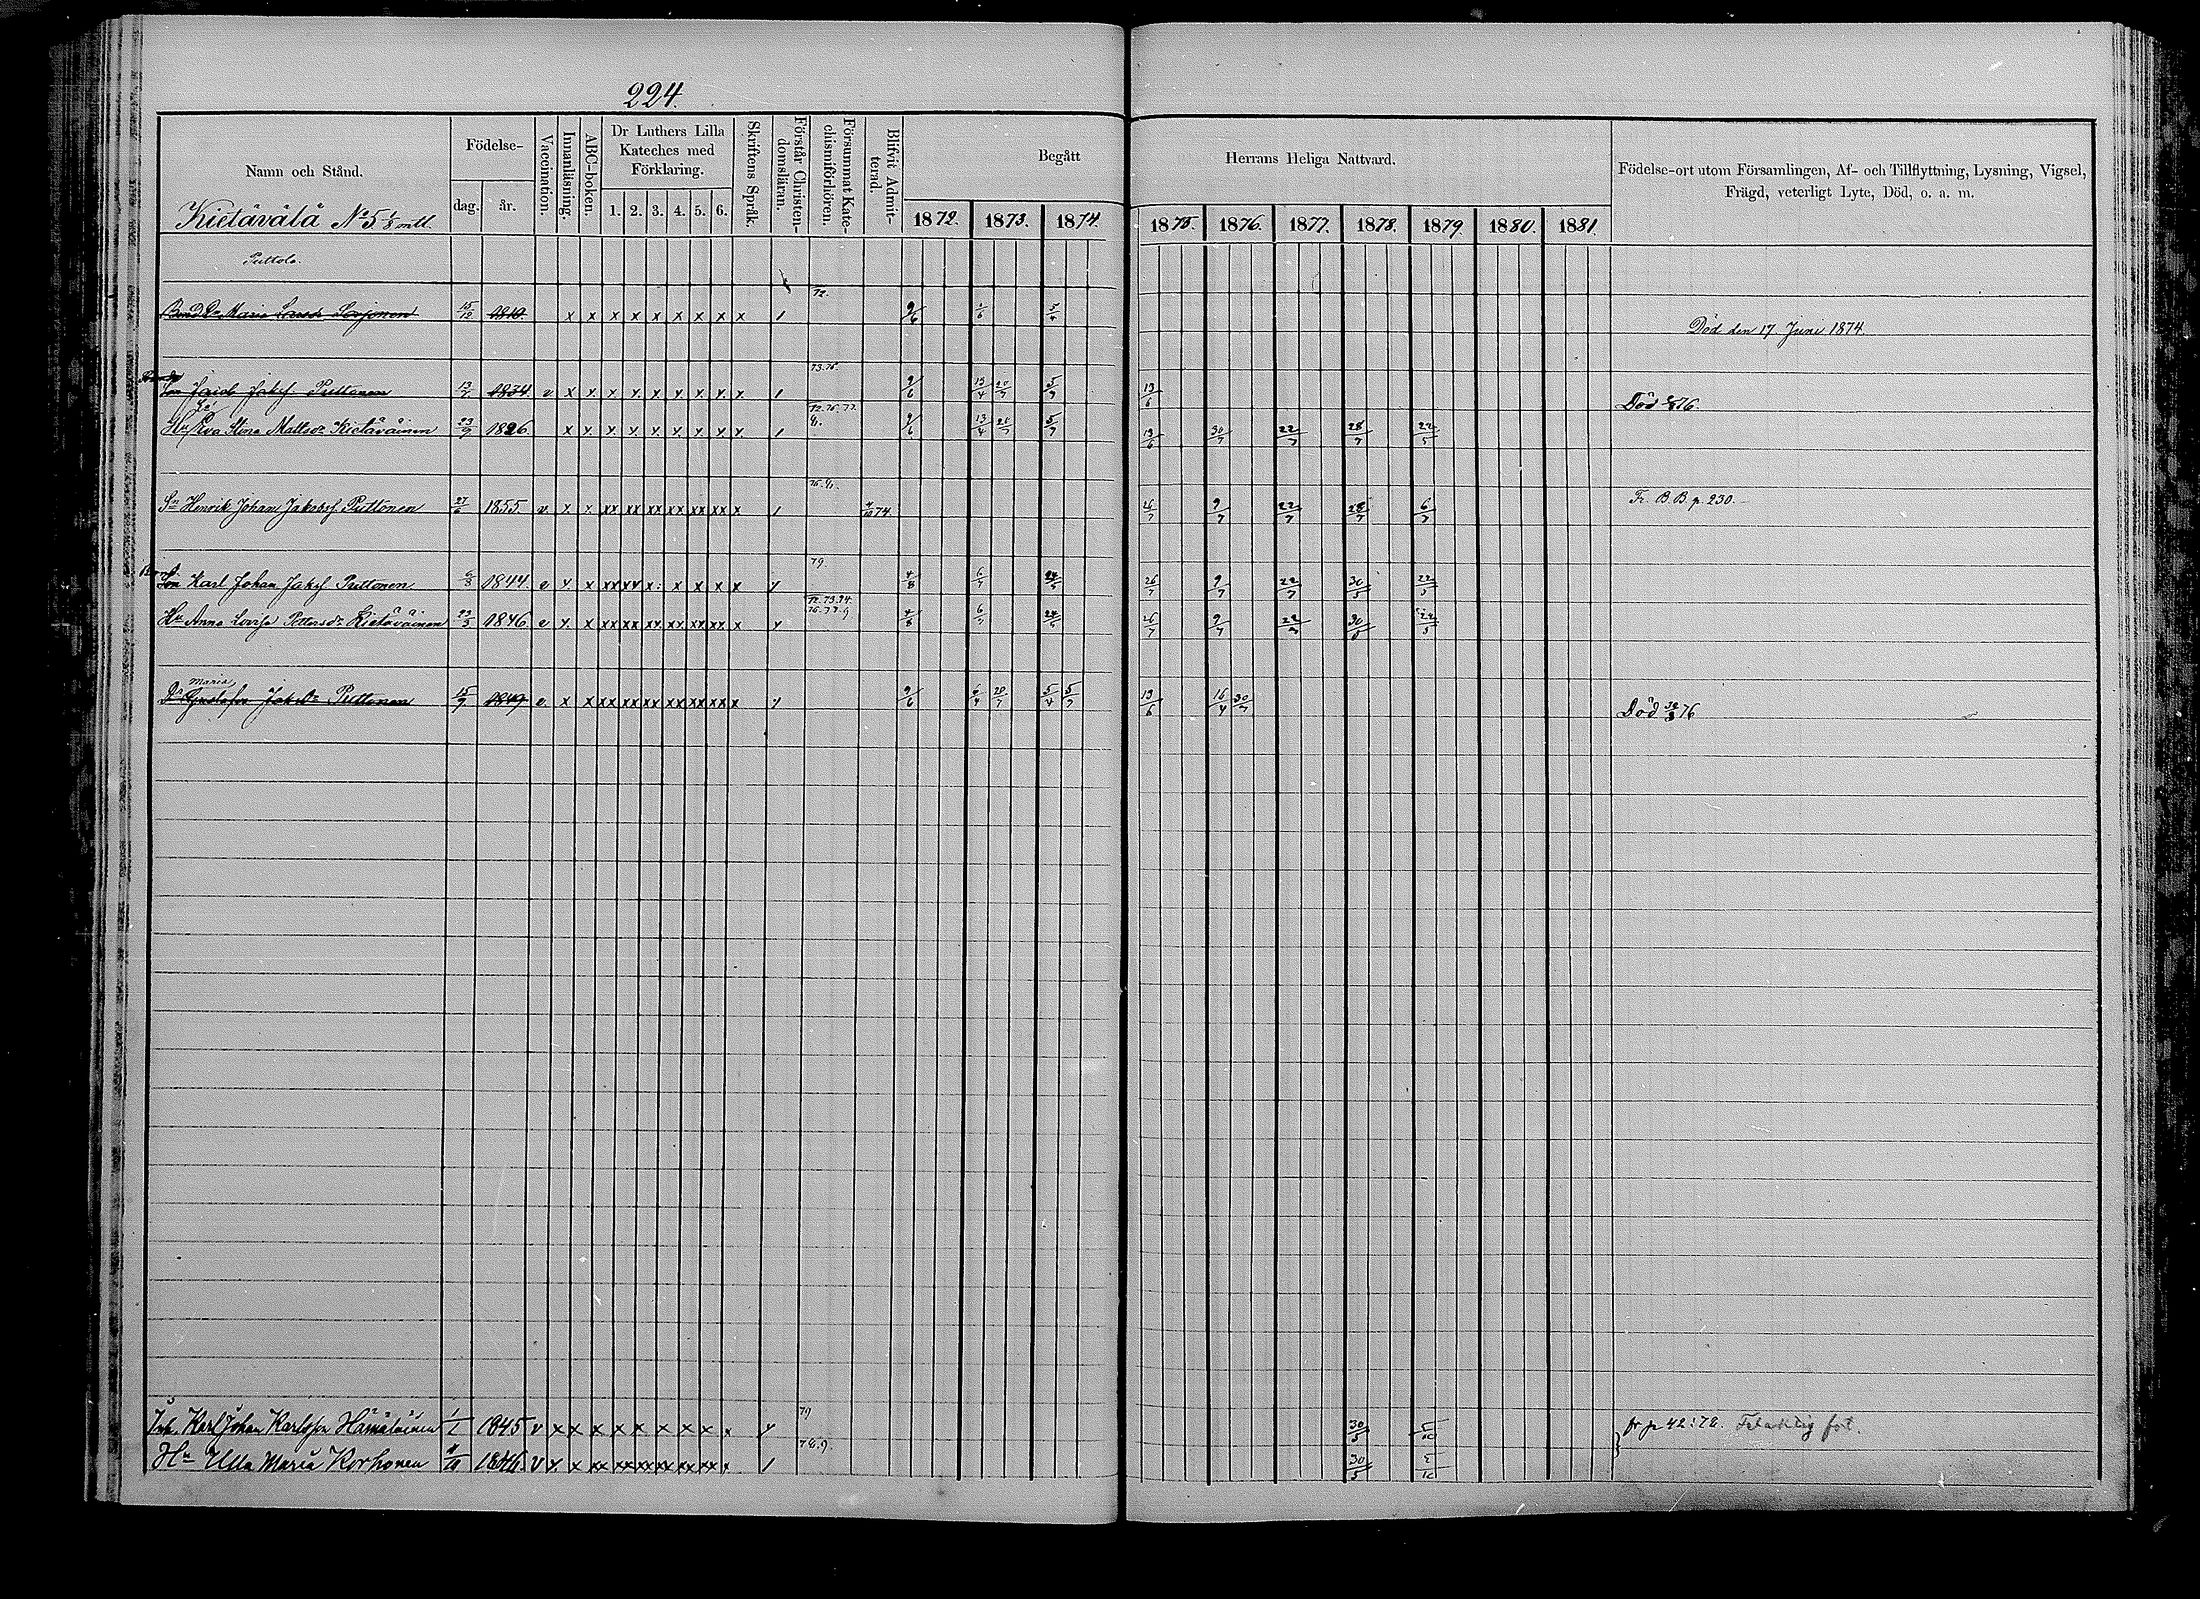 224.
Namn och Stånd. Födelse- Vaccination. Innanläsning. ABC-boken. Dr Luthers Lilla Kateches med Förklaring. Skriftens Språk. Förstår Christendomsläran. Försummat Katechismiförhören. Blifvit Admitterad. Begått Herrans Heliga Nattvard. Födelse-ort utom Församlingen, Af- och Tillflyttning, Lysning, Vigsel, Frägd, veterligt Lyte, Död, o. a. m.
dag. år. 1. 2. 3. 4. 5. 6. 1872. 1873. 1874. 1875. 1876. 1877. 1878. 1879. 1880. 1881.
Kietävälä No 5 1/8 mtl.
Puttola.
72.
Maria Larsdr 15/12 x x x x x x x x x / 9/6 1/6 5/4 Död den 17 Juni 1874
73.75.
Son Jacob Jaksf Puttonen 13/7 1834 v x x x x x x x x x / 9/6 13/4 20/7 5/7 13/6 Död 76.
Hu Eva Stina Mattsdr Kietäväinen 23/9 1826 x x x x x x x x x / 9/6 13/4 20/7 5/7 13/6 30/7 22/7 28/7 22/5
Sn Henrik Johan Jakobsf Puttonen 27/6 1855 v x x xx xx xx xx xx xx x / 74. 26/7 9/7 22/7 28/7 6/7 Fr. B.B. p. 230.
79
Son Karl Johan Jaksf Puttonen 6/8 1844. v x x xx xx x x x x x y 4/8 6/7 24/5 26/7 9/7 22/7 30/5 22/5
72.73.74.
Hu Anna Lovisa Pettersdr Kietäväinen 23/3 1846 v x x xx xx xx xx xx xx x y 4/8 6/7 24/5 26/7 9/7 22/7 30/5 22/5
Maria
Dr Gustafva Jaksdr Puttonen 15/9 1849 v x x xx xx xx xx xx xx x y 9/6 6/4 20/7 5/4 5/7 13/6 16/4 30/7 Död 30/8 76
79
Karl Johan Karlsson Hämäläinen 1/1 1845 v x x x x x x x x x y 30/5 5/10 fr p 42:72.
78.9.
Hu Ulla Maria Korhonen 1846. v x x xx xx xx xx xx xx x / 30/5 5/10